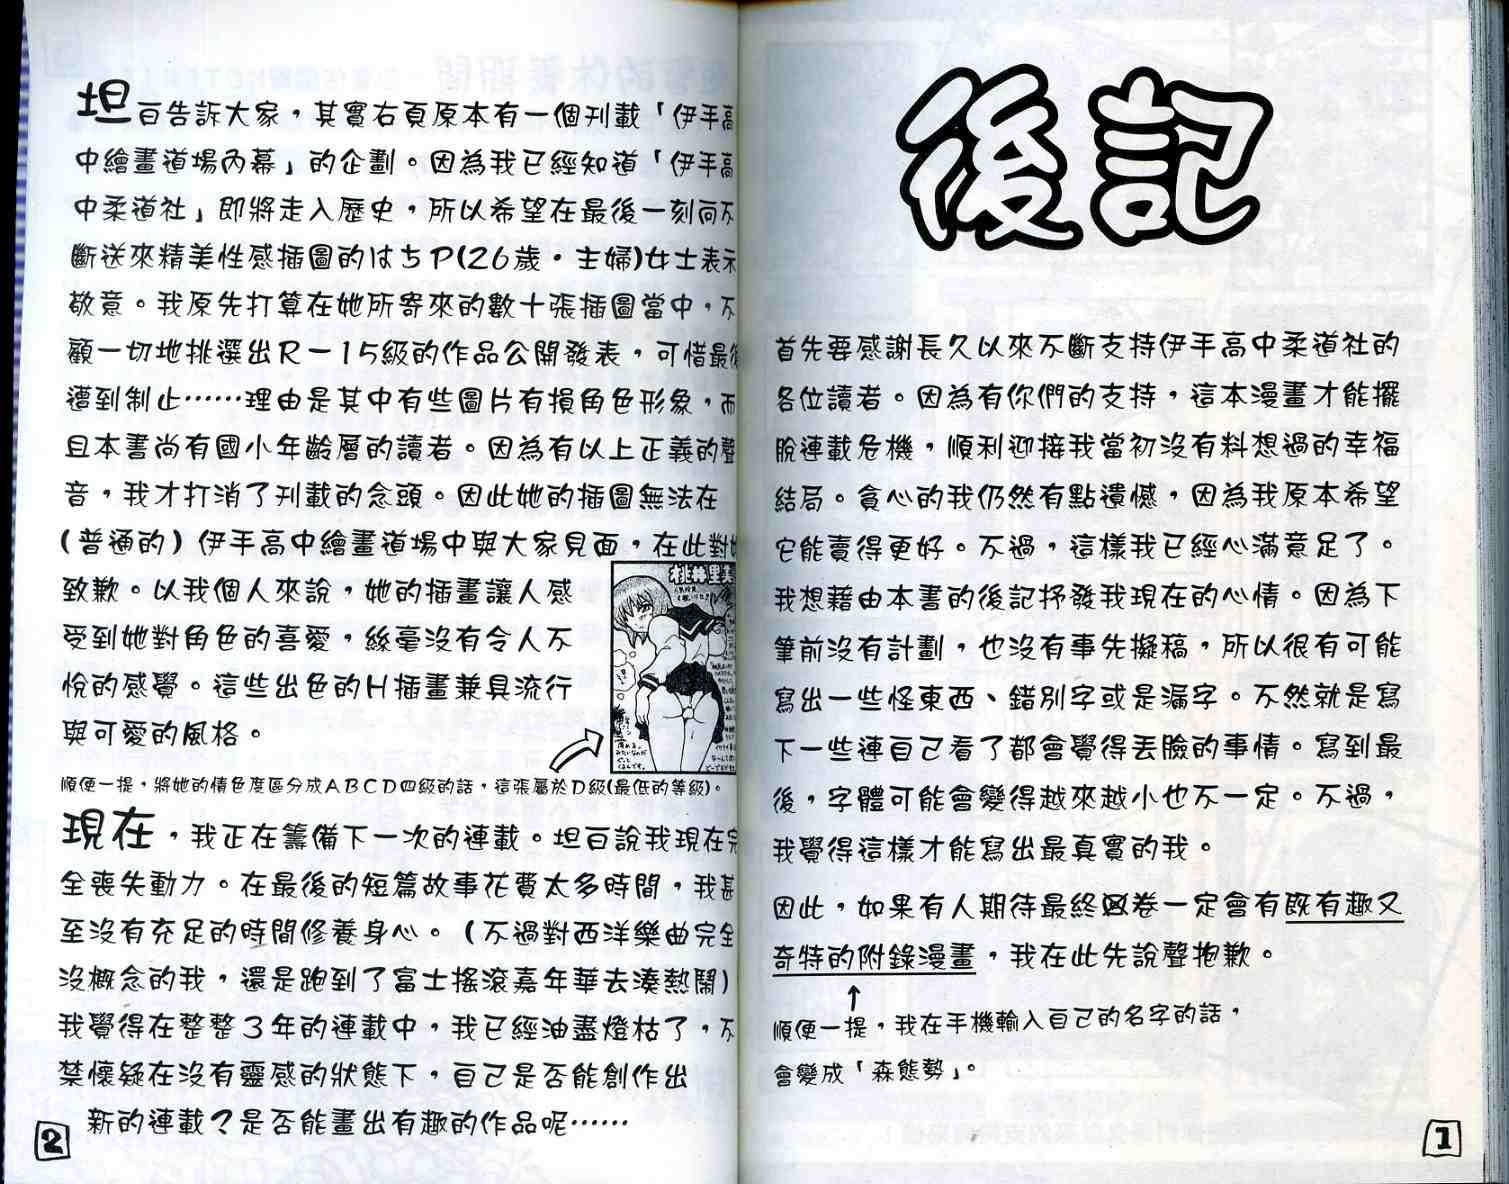 後記
首先要感謝長久以來不斷支持伊手高中柔道社的
各位讀者。因為有你們的支持，這本漫畫才能擺
脫連載危機，順利迎接我當初沒有料想過的幸福
結局。貪心的我仍然有點遺憾，因為我原本希望
它能賣得更好。不過，這樣我已經心滿意足了。
我想藉由本書的後記抒發我現在的心情。因為下
筆前沒有計劃，也沒有事先擬稿，所以很有可能
寫出一些怪東西、錯別字或是漏字。不然就是寫
下一些連自己看了都會覺得丟臉的事情。寫到最
後，字體可能會變得越來越小也不一定。不過，
我覺得這樣才能寫出最真實的我。
因此，如果有人期待最終卷一定會有既有趣又
奇特的附錄漫畫，我在此先說聲抱歉。
↑
順便一提，我在手機輸入自己的名字的話，
會變成「森態勢」。
1
坦白告訴大家，其實右頁原本有一個刊載「伊手高
中繪畫道場內幕」的企劃。因為我已經知道「伊手高
中柔道社」即將走入歷史，所以希望在最後一刻向不
斷送來精美性感插圖的はちP(26歲・主婦)女士表示
敬意。我原先打算在她所寄來的數十張插圖當中，不
顧一切地挑選出R－15級的作品公開發表，可惜最後
遭到制止……理由是其中有些圖片有損角色形象，而
且本書尚有國小年齡層的讀者。因為有以上正義的聲
音，我才打消了刊載的念頭。因此她的插圖無法在
(普通的)伊手高中繪畫道場中與大家見面，在此對她
致歉。以我個人來說，她的插畫讓人感
受到她對角色的喜愛，絲毫沒有令人不
悅的感覺。這些出色的H插畫兼具流行
與可愛的風格。
桃林里美
順便一提，將她的情色度區分成ABCD四級的話，這張屬於D級(最低的等級)。
現在，我正在籌備下一次的連載。坦白說我現在完
全喪失動力。在最後的短篇故事花費太多時間，我甚
至沒有充足的時間修養身心。(不過對西洋樂曲完全
沒概念的我，還是跑到了富士搖滾嘉年華去湊熱鬧)
我覺得在整整3年的連載中，我已經油盡燈枯了，不
禁懷疑在沒有靈感的狀態下，自己是否能創作出
新的連載？是否能畫出有趣的作品呢……
2